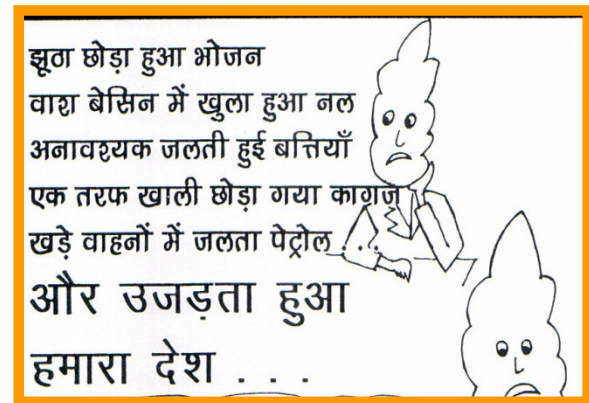 झूठा छोड़ा हुआ भोजन
वाश बेसिन में खुला हुआ नल
अनावश्यक जलती हुई बत्तियाँ
एक तरफ खाली छोड़ा गया कागज़
खड़े वाहनों में जलता पेट्रोल . . .
और उजड़ता हुआ
हमारा देश . . .